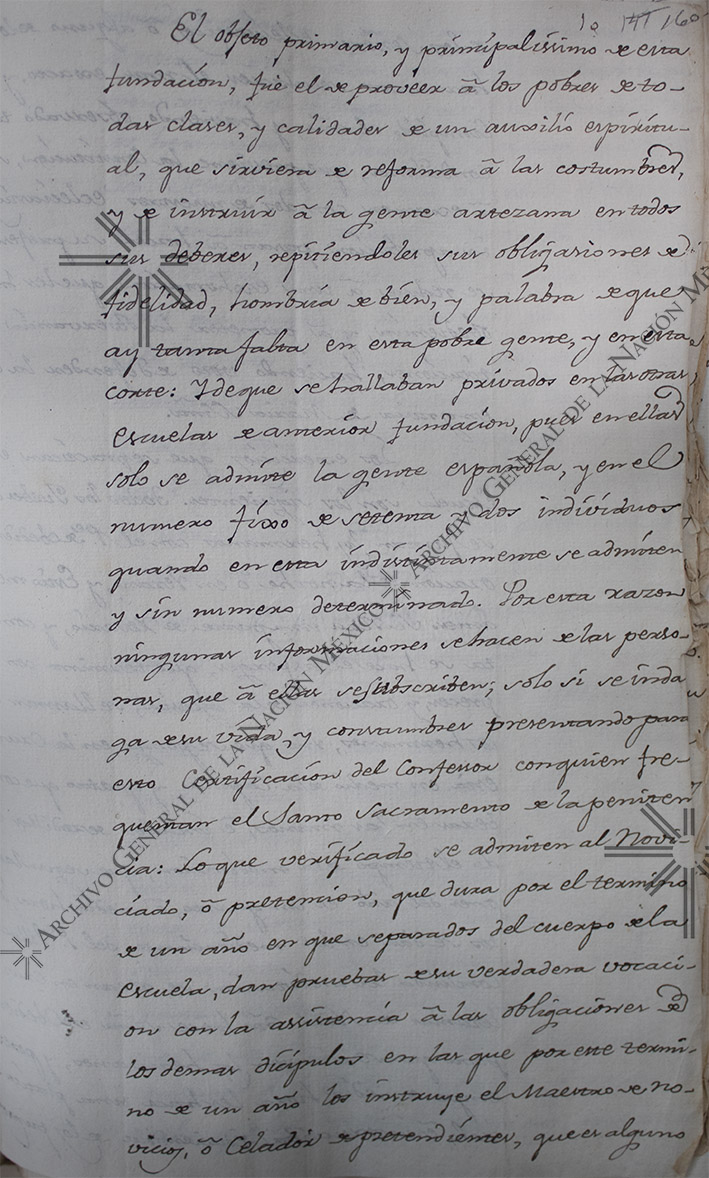 10 160
El objeto primario, y principalissimo de esta
fundacion, fue el de proveer â los pobres de to-
das clases, y calidades de un auxilio espiritu-
al, que sirviera de reforma â las costumbres,
y de instruir â la gente artezana en todos
sus deberes, repitiendoles sus obligasiones de
fidelidad, hombria de bien, y palabra de que
ay tanta falta en esta pobre gente, y en esta
corte: Y de que se hallaban privados en las otras
escuelas de anterior fundacion, pues en ellas
solo se admite la gente española, y en el
numero fixo de setenta y dos individuos
quando en esta indistintamente se admiten
y sin numero determinado. Por esta razon
ningunas informaciones se hacen de las perso-
nas, que â ellas se subscriben; solo si se inda
ga de su vida, y constumbres presentando para
esto Certificacion del Confessor con quien fre-
quentan el Santo Sacramento de la peniten
cia: Lo que verificado se admiten al Novi-
ciado, ô pretencion, que dura por el termino
de un año en que separados del cuerpo de la
escuela, dan pruebas de su verdadera vocaci-
on con la assistencia â las obligaciones de
los demas dicipulos en las que por este termi-
no de un año los instruye el Maestro de no-
vicios, ô Celador de pretendientes, que es alguno
ARCHIVO GENERAL DE LA NACIÓN MÉXICO
ARCHIVO GENERAL DE LA NACIÓN MÉXICO